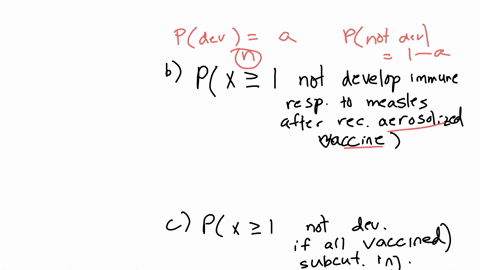 P(dev) = a P(not dev)
n = 1-a
b) P(x ≥ 1 not develop immune
resp. to measles
after rec. aerosolized
vaccine)
c) P(x ≥ 1 not dev.
if all vaccined)
subcut. inj.